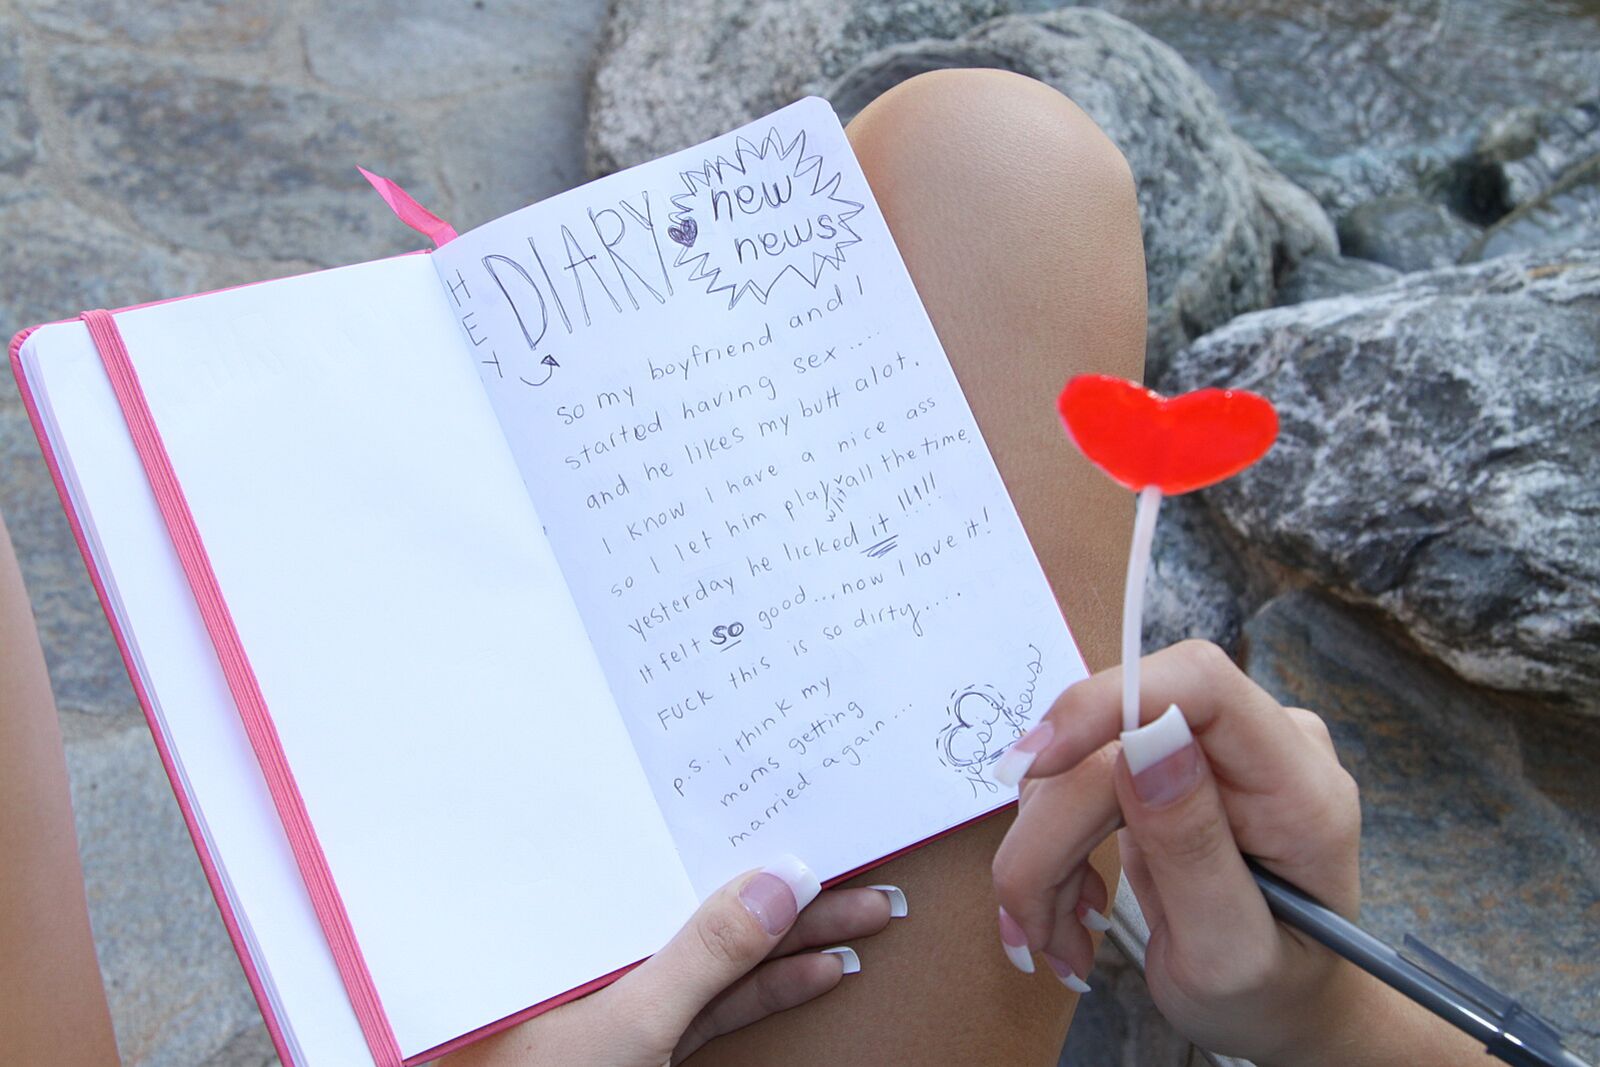 HEY DIARY new
news
so my boyfriend and I
started having sex....
and he likes my butt alot.
I know I have a nice ass
so I let him play with it all the time.
yesterday he licked it !!!!!!
It felt so good...now I love it!
FUCK this is so dirty....
p.s. i think my
moms getting
married again...